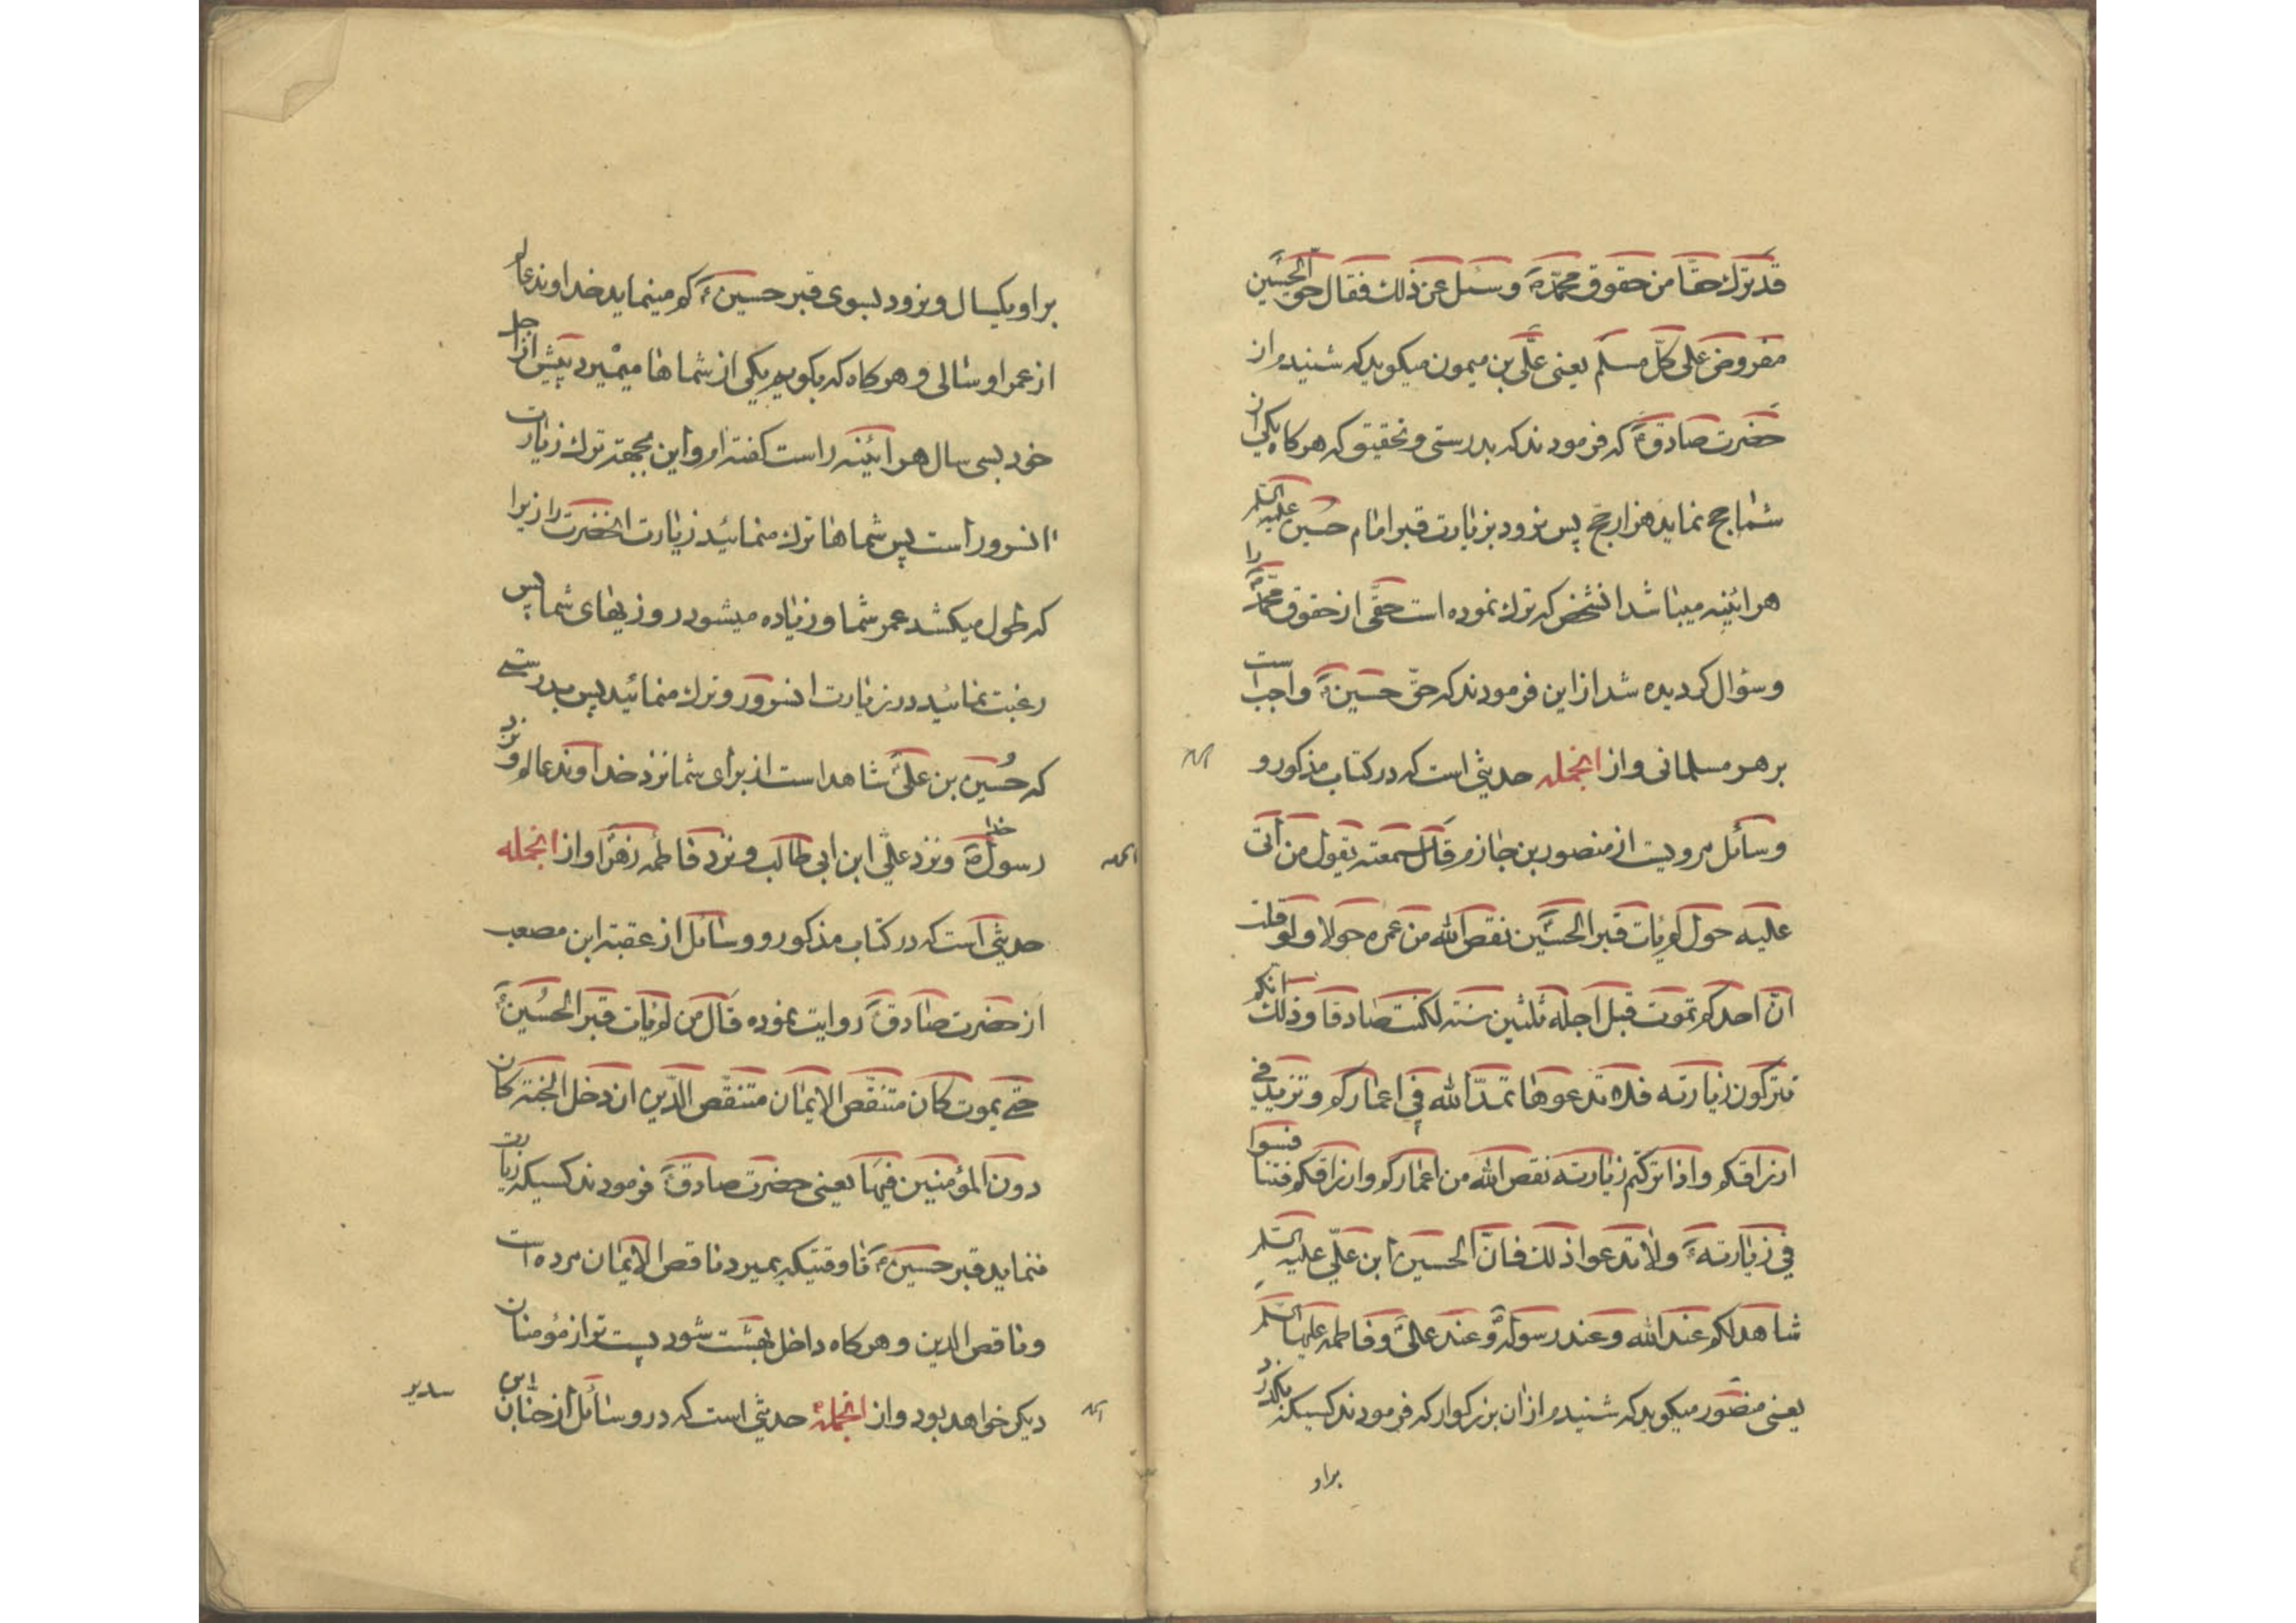 قد ترك حقّا من حقوق محمّدؐ وسئل عن ذلك فقال حق الحسين
مفروض على كلّ مسلم يعنى علّى بن ميمون ميكويد كه شنيدم از
حضرت صادقؑ كه فرمودند كه بدرستى و تحقيق كه هر كاه يكى از
شما حج نمايد هزار حجّ پس نرود بزيارت قبر امام حسين عليه السلم
هر اينه ميباشد انشخص كه ترك نموده است حقّى از حقوق محمّدؐ را
و سؤال كرديده شد از اين فرمودند كه حقّ حسينؑ واجب است
بر هر مسلمانى و از انجمله حديثى است كه در كتاب مذكور و
وسائل مرويست از منصور بن حازم قال سمعته يقول من اتى
عليه حول لم يات قبر الحسين نقص الله من عمره حولا ولو قلت
انّ احدكم تموت قبل اجله ثلثين سنته لكنت صادقا وذلك انكم
تتركون زيارته فلا تدعوها تمدّ الله فى اعماركم وتزيد فى
ارزاقكم واذا تركتم زيارته نقص الله من اعماركم وارزاقكم فتنافسوا
فى زيارتهؑ ولا تدعوا ذلك فانّ الحسين ابن علىّ عليه السلم
شاهد لكم عند الله وعند رسولهؐ وعند علىّ وفاطمه عليها السلم
يعنى منصور ميكويد كه شنيدم از ان بزركوار كه فرمودند كسيكه بكذرد
براو
بر او يكسال و نرود بسوى قبر حسينؑ كم مينمايد خداوند عالم
از عمر او سالى و هر كاه كه بكويم يكى از شماها ميميرد پيش از اجل
خود بسى سال هر ائينه راست كفته ام و اين بجهته ترك زيارت
انسرور است پس شماها ترك منمائيد زيارت انحضرت را زيرا
كه طول ميكشد عمر شما و زياده ميشود روزيهاى شما پس
رغبت نمائيد در زيارت انسرور و ترك منمائيد پس بدرستى
كه حسين بن علىّ شاهد است از براى شما نزد خداوند عالم و نزد
رسول خداؐ و نزد على ابن ابى طالب و نزد فاطمه زهرا و از انجمله
حديثى است كه در كتاب مذكور و وسائل از عقبته ابن مصعب
از حضرت صادقؑ روايت نموده قال من لم يات قبر الحسينؑ
حتى يموت كان متنقّص الايمان متنقّص الدّين ان دخل الجنته كان
دون المؤمنين فيها يعنى حضرت صادقؑ فرمودند كسيكه زيارت
ننمايد قبر حسينؑ تا وقتيكه بميرد ناقص الايمان مرده است
و ناقص الدين و هر كاه داخل بهشت شود پست تر از مؤمنان
ديكر خواهد بود و از انجمله حديثى است كه در وسائل از حنّان ابن
سدير